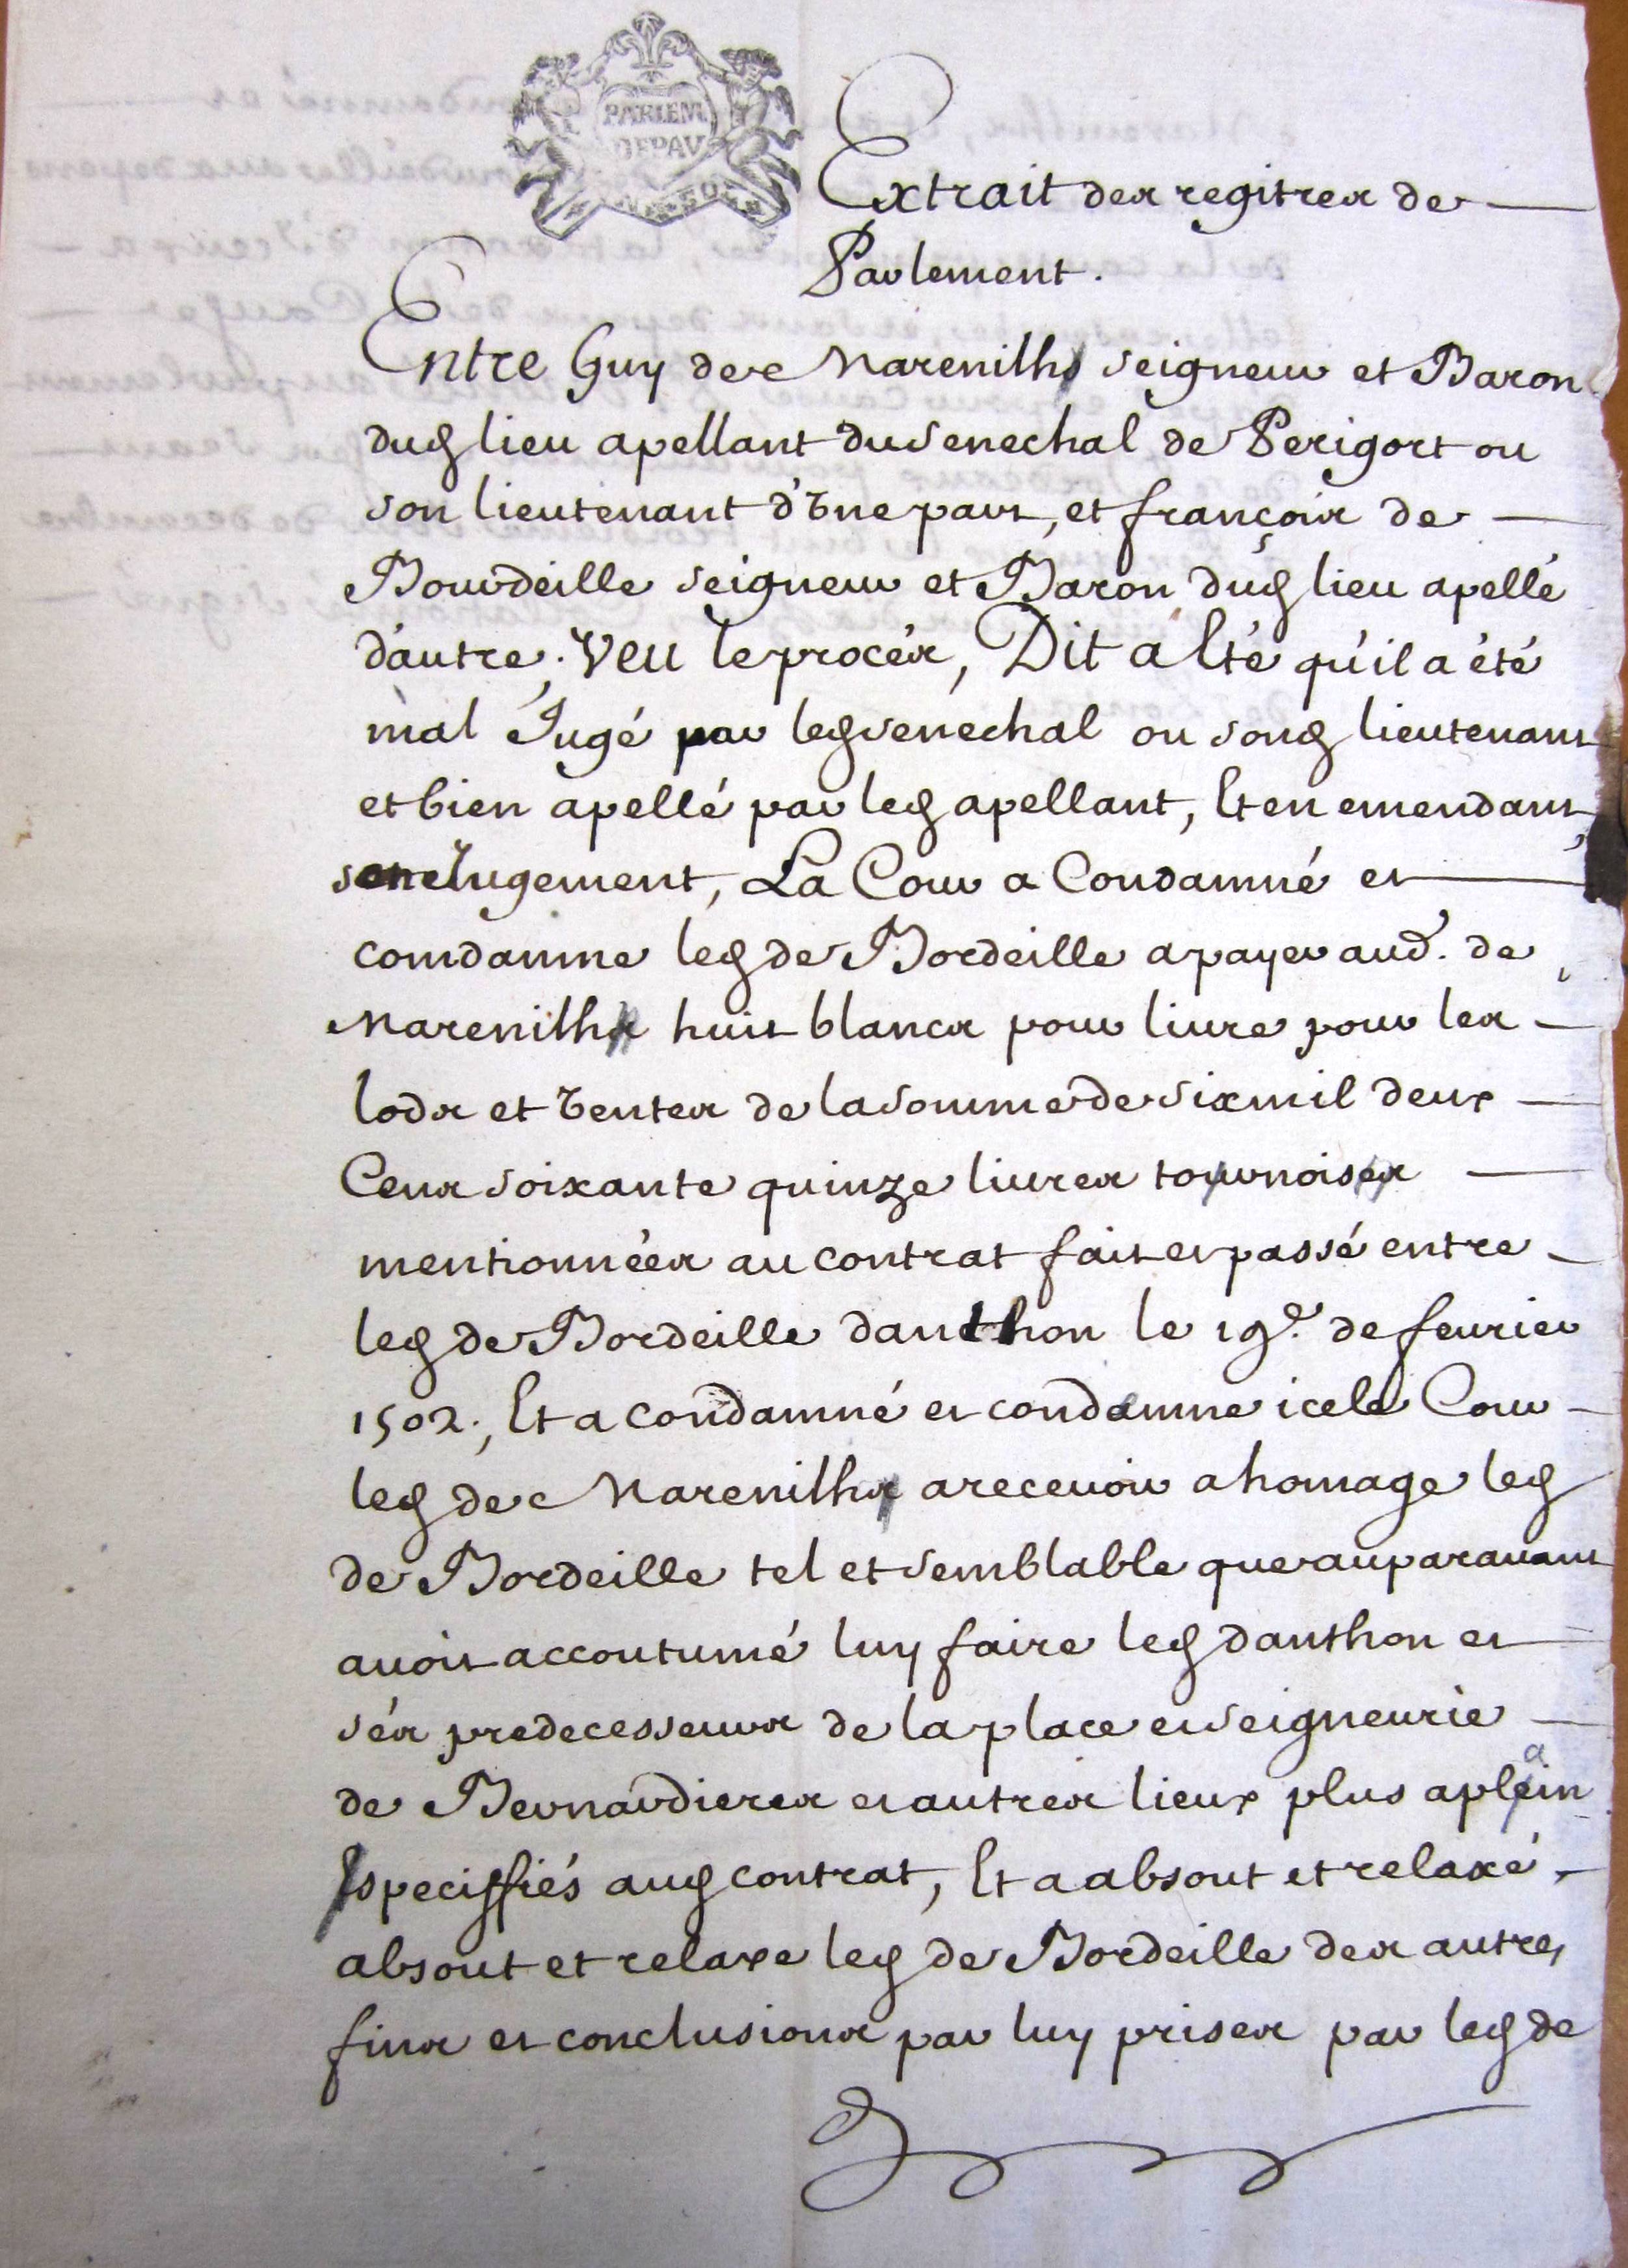 PARLEM
DEPAV
Extrait des regitres de
Parlement.
Entre Guy de Marenilhs seigneur et Baron
dud lieu apellant du senechal de Perigort ou
son lieutenant d'une part, et françois de
Bourdeille seigneur et Baron dud lieu apellé
d'autre; Veu le procés, Dit a eté qu'il a été
mal Jugé par led senechal ou sond lieutenant
et bien apellé par led apellant, Et en emendant
son Jugement, La Cour a Condamné et
comdamne led de Bordeille a payer aud. de
Marenilhs huit blancs pour livre pour les
lods et ventes de la somme de six mil deux
Cens soixante quinze livres tournoises
mentionnées au contrat fait et passé entre
led de Bordeille danthon le 19e. de fevrier
1502; Et a condamné et condamne icele Cour
led de Marenilhs a recevoir a homage led
de Bordeille tel et semblable que auparavant
avoit accoutumé luy faire led danthon et
sés predecesseurs de la place et seigneurie
de Bernardieres et autres lieux plus a plain
specifiés aud contrat, Et a absout et relaxé,
absout et relaxe led de Bordeille des autres
fins et conclusions par luy prises par led de